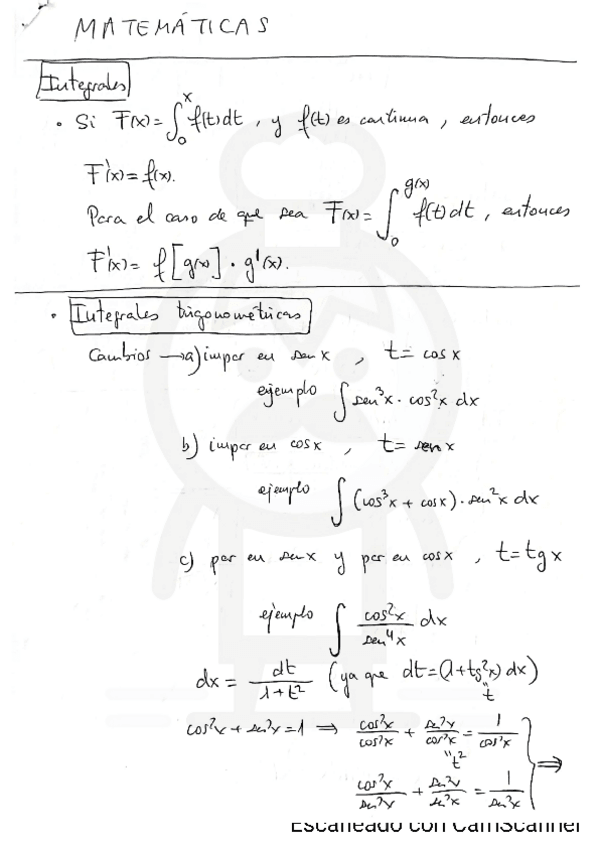 MATEMÁTICAS
Integrales
• Si F(x) = ∫₀ˣ f(t)dt , y f(t) es continua, entonces
F'(x) = f(x).
Para el caso de que sea F(x) = ∫₀^g(x) f(t)dt , entonces
F'(x) = f[g(x)] · g'(x).
• Integrales trigonométricas
Cambios → a) impar en sen x , t = cos x
ejemplo ∫ sen³x · cos²x dx
b) impar en cos x , t = sen x
ejemplo ∫ (cos³x + cos x) · sen²x dx
c) par en sen x y par en cos x , t = tg x
ejemplo ∫ cos²x / sen⁴x dx
dx = dt / 1+t² (ya que dt = (1 + tg²x) dx)
" t
cos²x + sen²x = 1 ⇒ cos²x/cos²x + sen²x/cos²x = 1/cos²x
" t²
cos²x/sen²x + sen²x/sen²x = 1/sen²x } ⇒
Escaneado con CamScanner